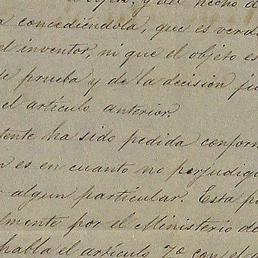 y del hecho d
concediéndola, que es verd
el inventor, ni que el objeto es
de prueba y de la decision ju
el artículo anterior.
tente ha sido pedida conform
n es en cuanto no perjudiqu
algun particular. Esta p
lmente por el Ministerio de
habla el artículo 7º con el